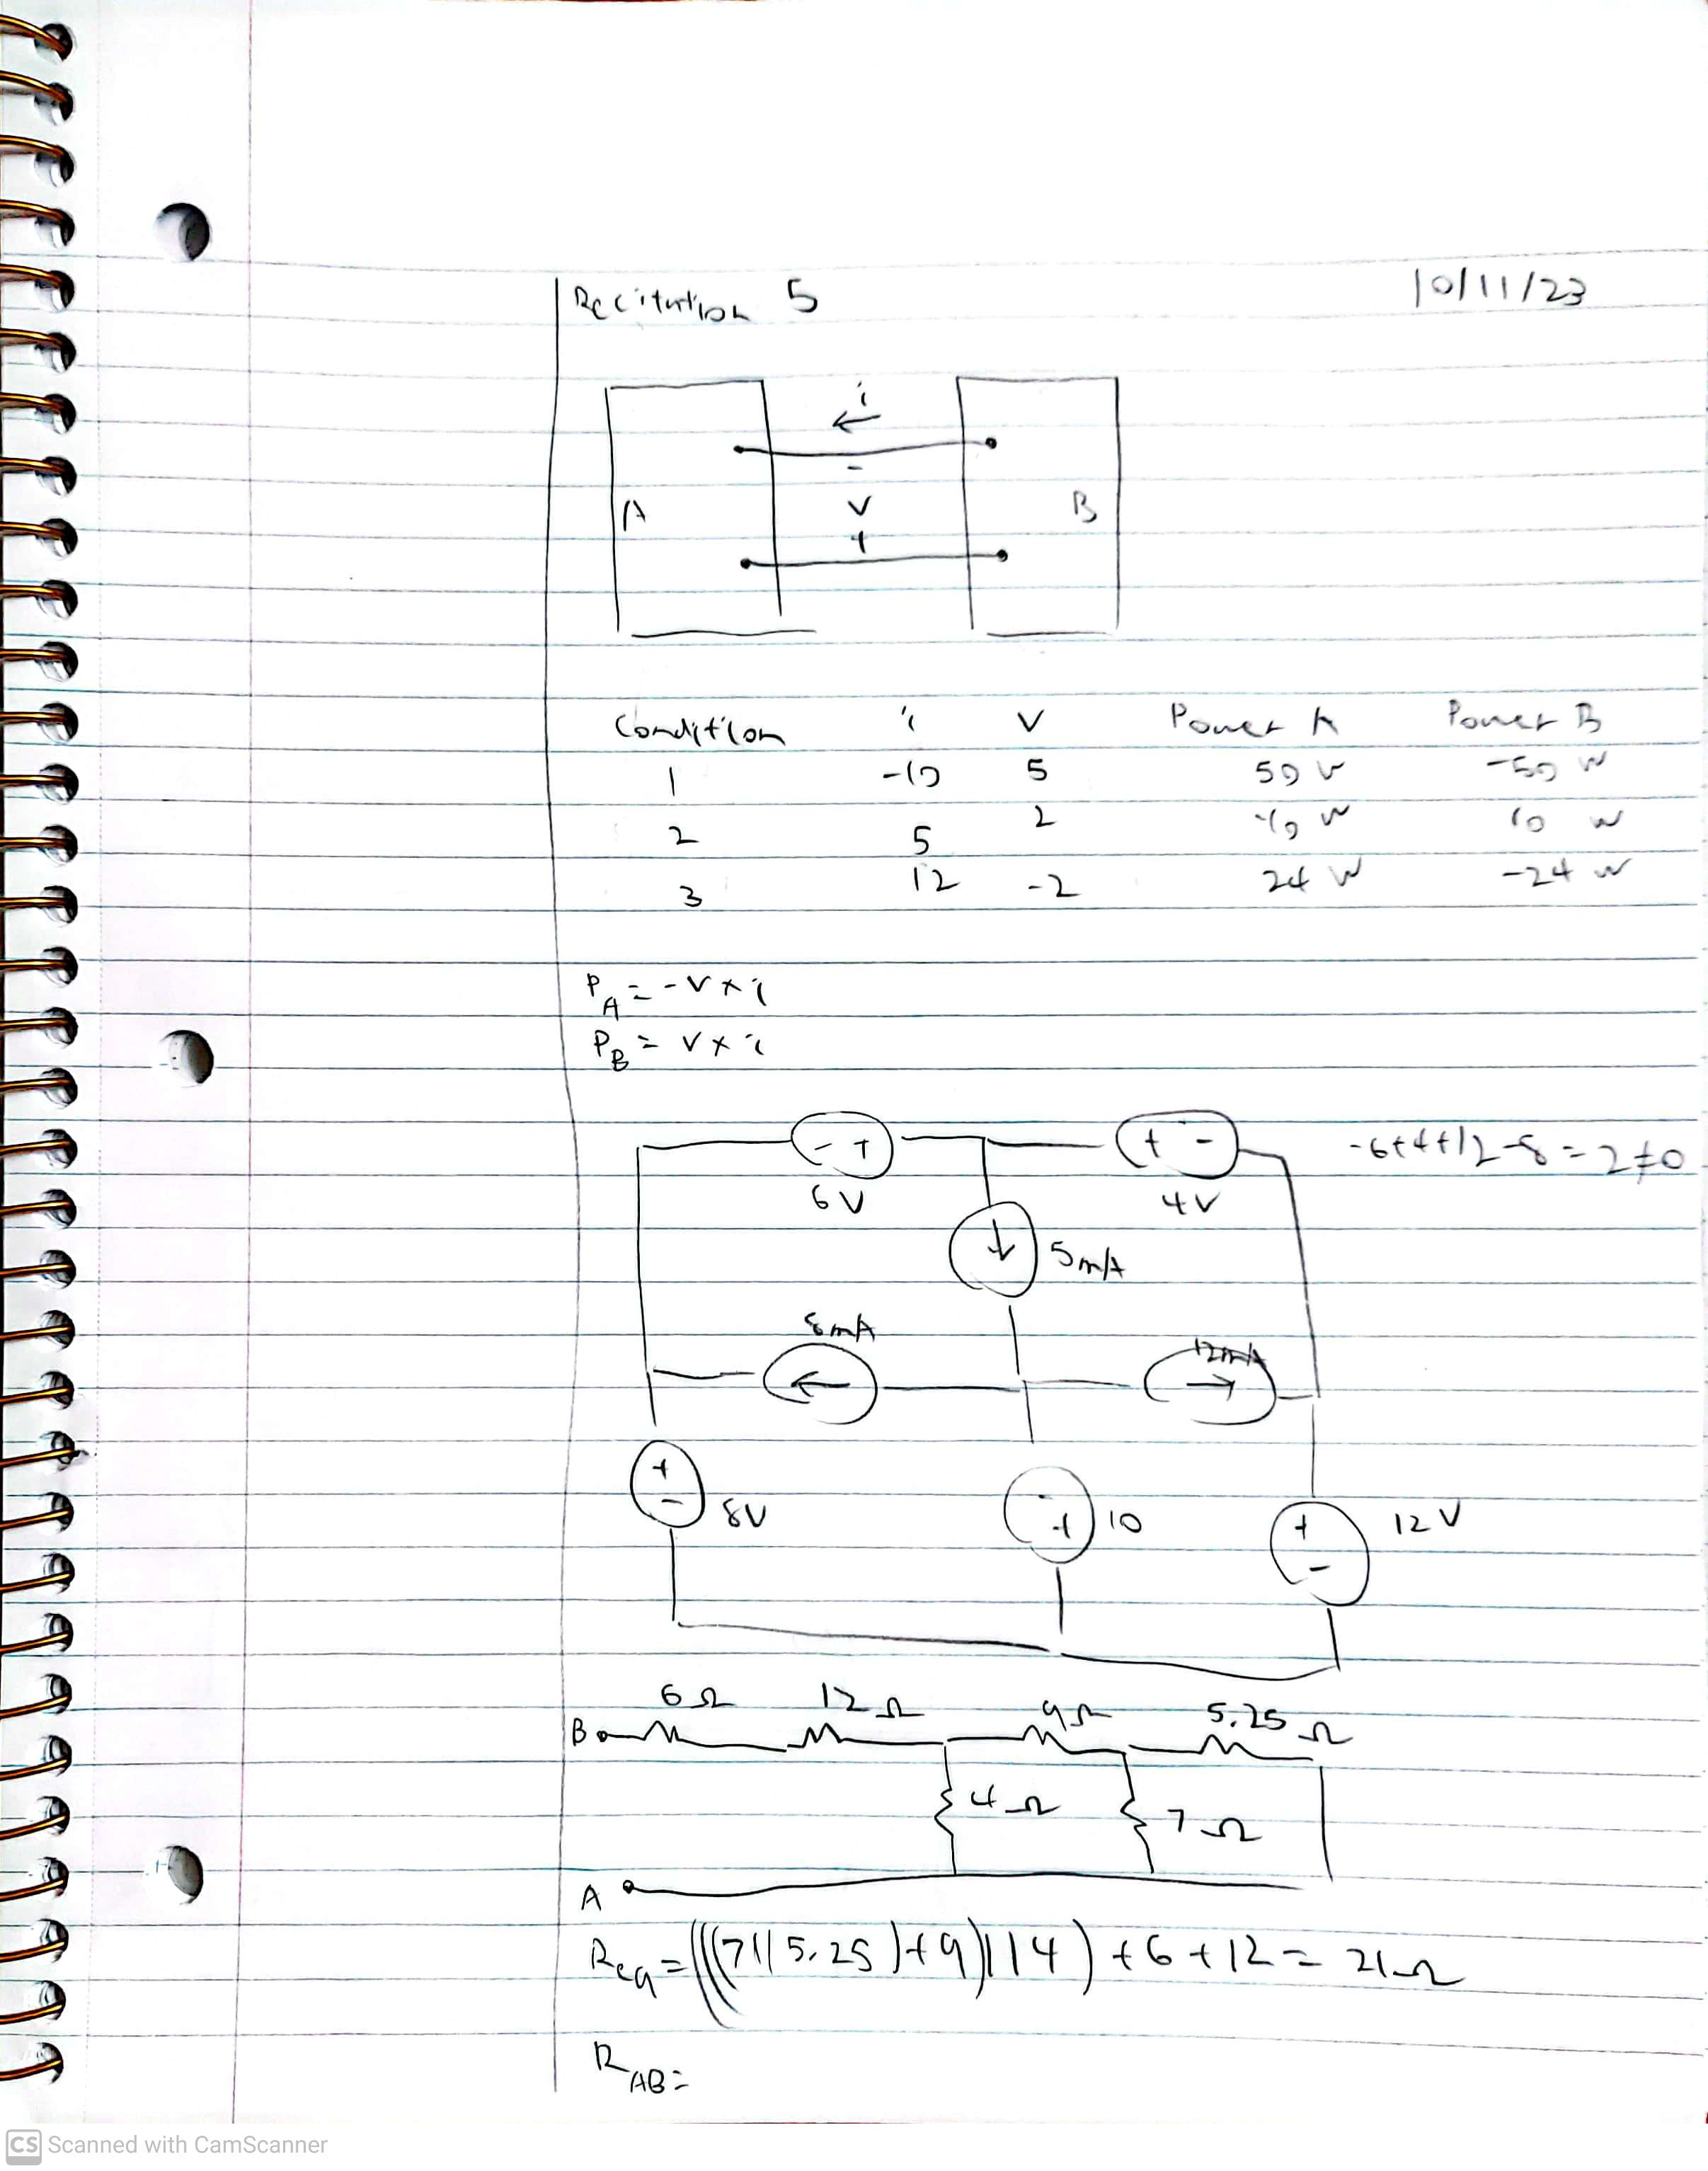 Recitation 5 10/11/23
i
←
-
A V B
+
Condition i V Power A Power B
1 -10 5 50 W -50 W
2 5 2 -10 W 10 W
3 12 -2 24 W -24 W
P_A = -V × i
P_B = V × i
- + + - -6+4+12-8 = 2 ≠ 0
6V 4V
↓ 5mA
8mA 12mA
← →
+ - 8V
- + 10
+ - 12V
6Ω 12Ω 9Ω 5.25Ω
B
4Ω 7Ω
A
Req = (((7||5.25)+9)||4) + 6 + 12 = 21Ω
R_AB =
CS Scanned with CamScanner